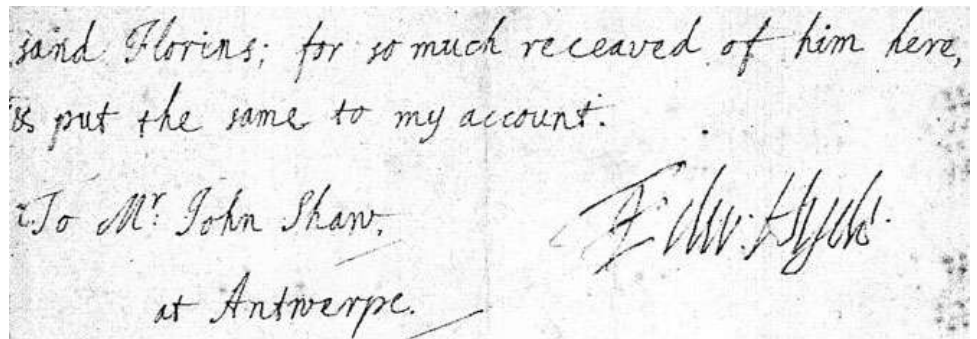 sand Florins; for so much receaved of him here,
& put the same to my account.
To Mr. John Shaw.
Edw: Hyde.
at Antwerpe.